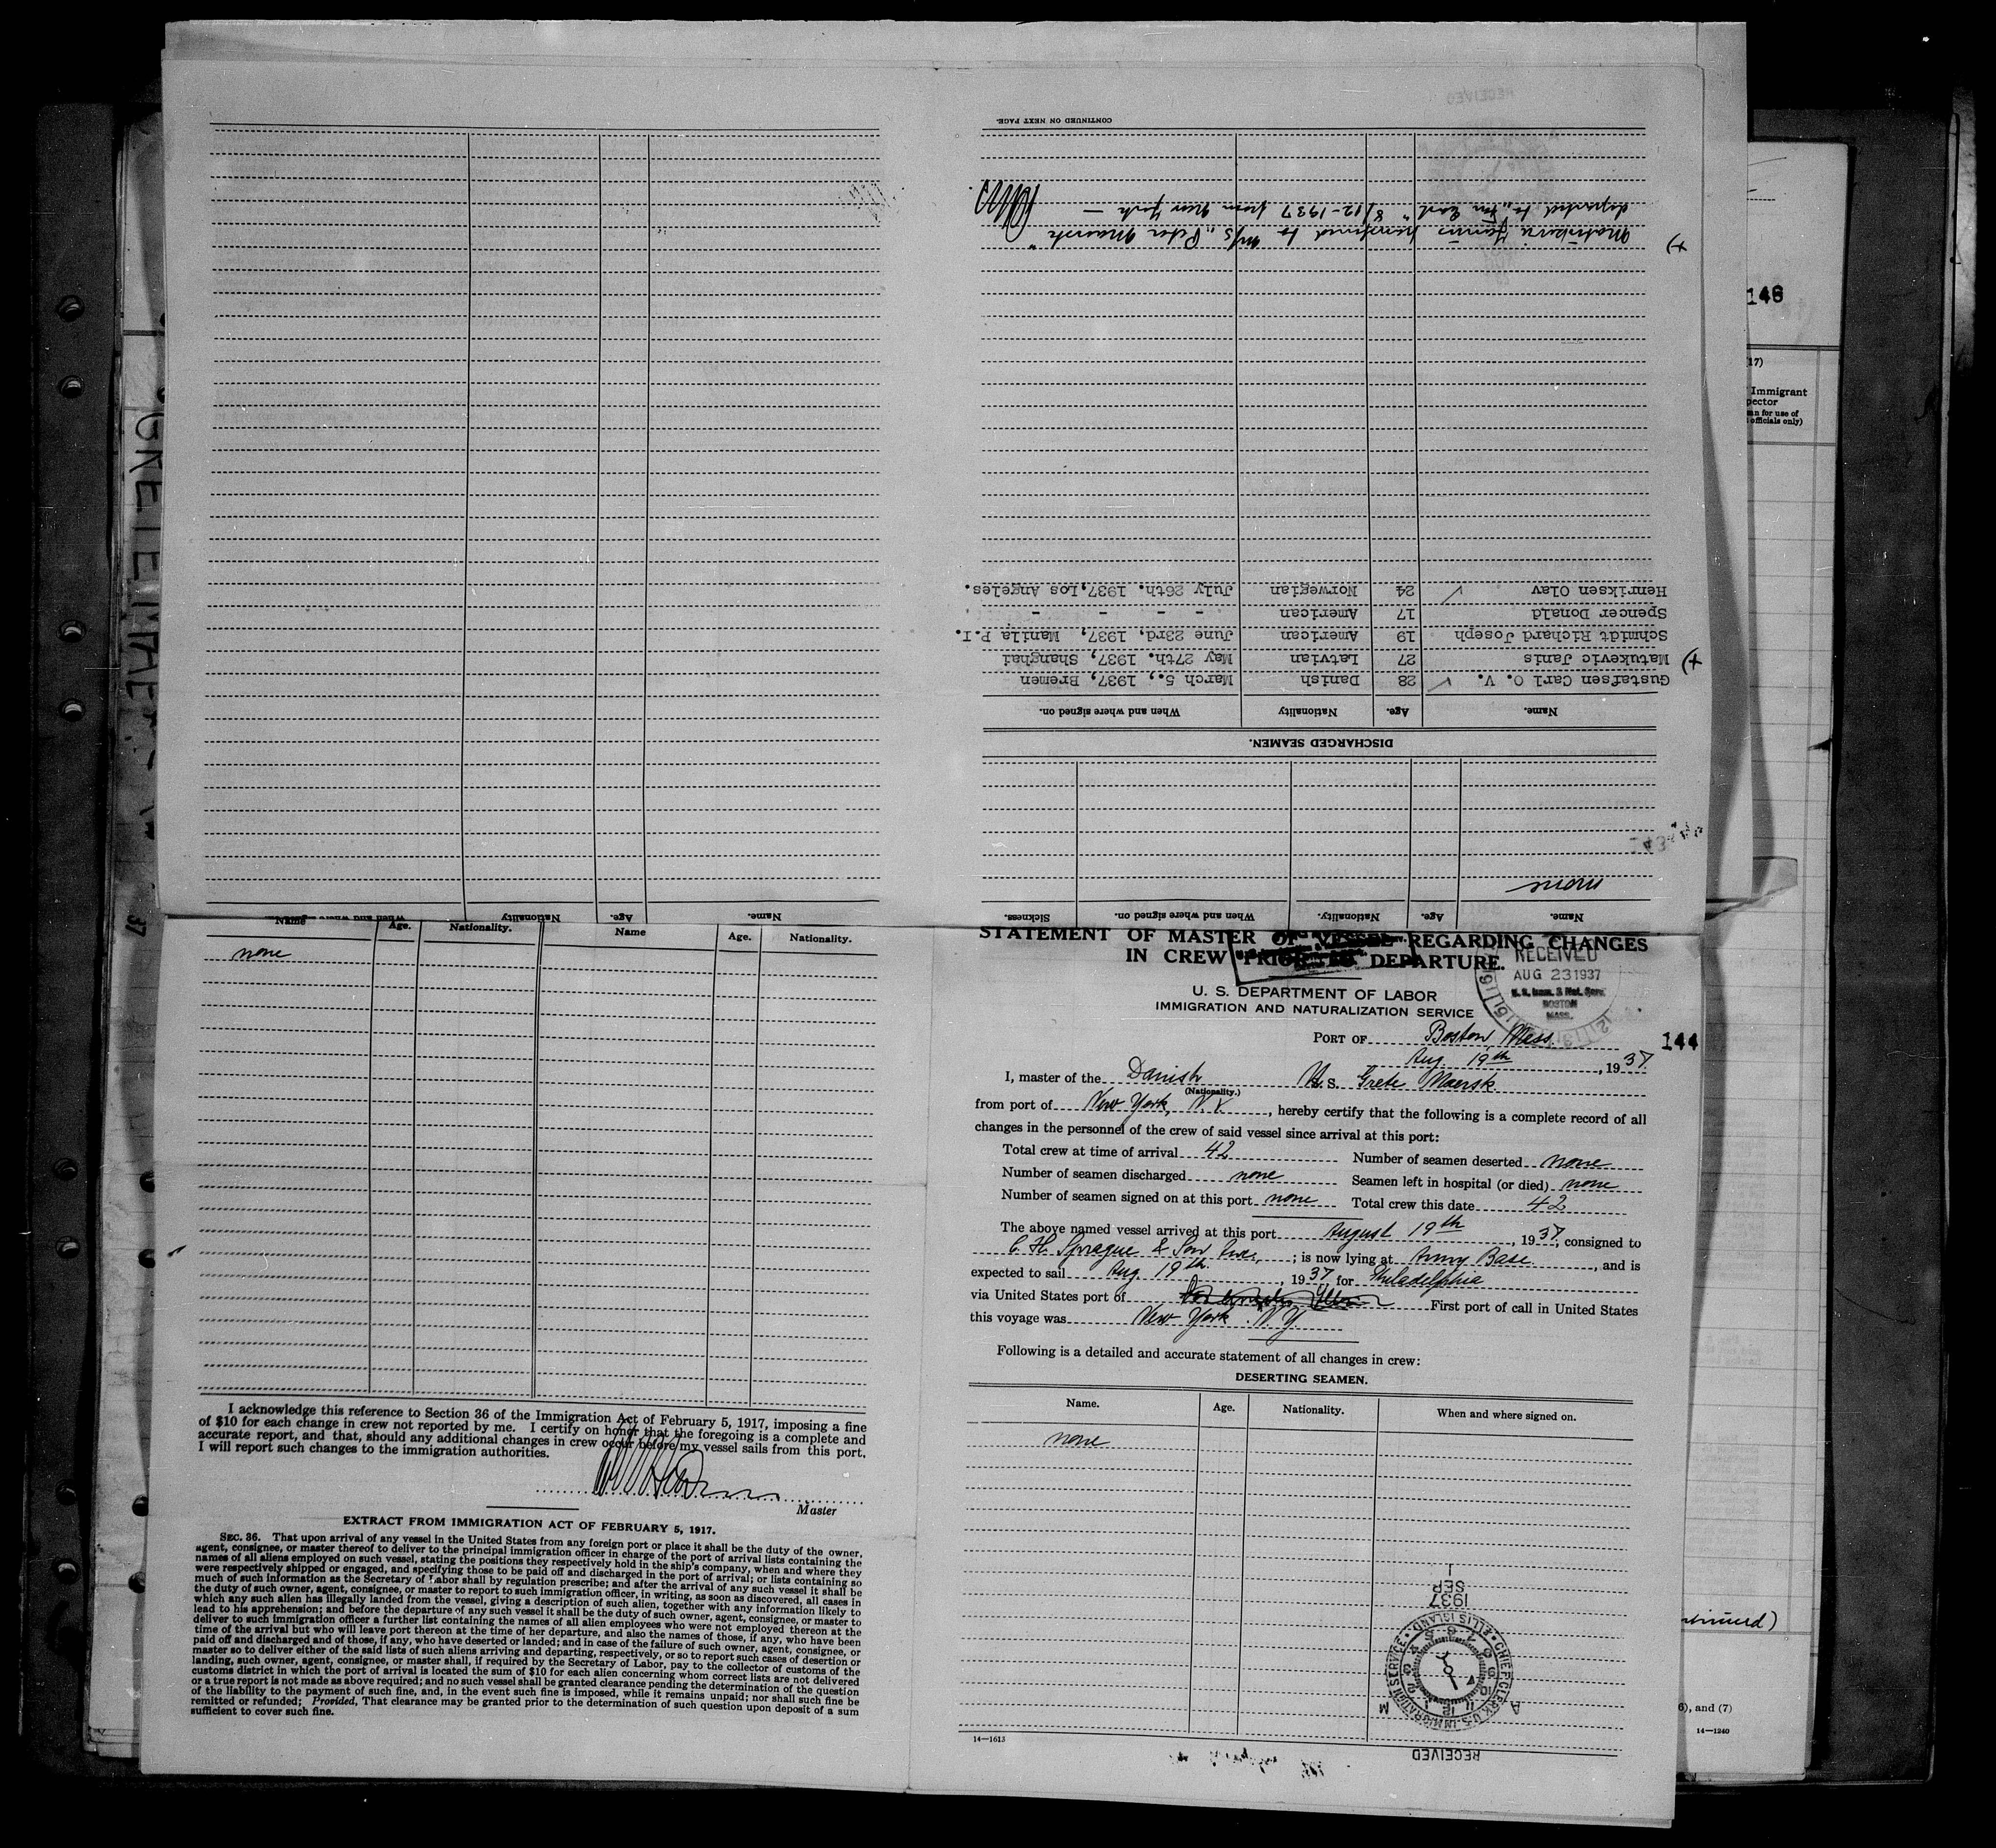 RECEIVED
CONTINUED ON NEXT PAGE.
Matukevic Janis transferred to M/S "Peter Maersk"
departed to "Far East" 8/12-1937 from New York —
+)
Henriksen Olav 24 Norwegian July 26th. 1937, Los Angeles.
Spencer Donald 17 American - - - -
Schmidt Richard Joseph 19 American June 23rd, 1937, Manila P.I.
+) Matukevic Janis 27 Latvian May 27th. 1937, Shanghai
Gustafsen Carl O. V. 28 Danish March 5., 1937, Bremen
Name. Age. Nationality When and where signed on.
DISCHARGED SEAMEN.
none
Name. Age. Nationality. When and where signed on. Sickness.
Name. Age. Nationality When and where
Name Age. Nationality. Name Age. Nationality.
none
I acknowledge this reference to Section 36 of the Immigration Act of February 5, 1917, imposing a fine
of $10 for each change in crew not reported by me. I certify on honor that the foregoing is a complete and
accurate report, and that, should any additional changes in crew occur before my vessel sails from this port,
I will report such changes to the immigration authorities.
Master
EXTRACT FROM IMMIGRATION ACT OF FEBRUARY 5, 1917.
SEC. 36. That upon arrival of any vessel in the United States from any foreign port or place it shall be the duty of the owner,
agent, consignee, or master thereof to deliver to the principal immigration officer in charge of the port of arrival lists containing the
names of all aliens employed on such vessel, stating the positions they respectively hold in the ship's company, when and where they
were respectively shipped or engaged, and specifying those to be paid off and discharged in the port of arrival; or lists containing so
much of such information as the Secretary of Labor shall by regulation prescribe; and after the arrival of any such vessel it shall be
the duty of such owner, agent, consignee, or master to report to such immigration officer, in writing, as soon as discovered, all cases in
which any such alien has illegally landed from the vessel, giving a description of such alien, together with any information likely to
lead to his apprehension; and before the departure of any such vessel it shall be the duty of such owner, agent, consignee, or master to
deliver to such immigration officer a further list containing the names of all alien employees who were not employed thereon at the
time of the arrival but who will leave port thereon at the time of her departure, and also the names of those, if any, who have been
paid off and discharged and of those, if any, who have deserted or landed; and in case of the failure of such owner, agent, consignee, or
master so to deliver either of the said lists of such aliens arriving and departing, respectively, or so to report such cases of desertion or
landing, such owner, agent, consignee, or master shall, if required by the Secretary of Labor, pay to the collector of customs of the
customs district in which the port of arrival is located the sum of $10 for each alien concerning whom correct lists are not delivered
or a true report is not made as above required; and no such vessel shall be granted clearance pending the determination of the question
of the liability to the payment of such fine, and, in the event such fine is imposed, while it remains unpaid; nor shall such fine be
remitted or refunded; Provided, That clearance may be granted prior to the determination of such question upon deposit of a sum
sufficient to cover such fine.
STATEMENT OF MASTER OF VESSEL REGARDING CHANGES
IN CREW PRIOR TO DEPARTURE.
RECEIVED
AUG 23 1937
U. S. Imm. & Nat. Serv.
BOSTON
MASS.
U. S. DEPARTMENT OF LABOR
IMMIGRATION AND NATURALIZATION SERVICE
PORT OF Boston Mass.
144
Aug 19th, 1937.
I, master of the Danish M. S. Grete Maersk
(Nationality.)
from port of New York, N.Y., hereby certify that the following is a complete record of all
changes in the personnel of the crew of said vessel since arrival at this port:
Total crew at time of arrival 42 Number of seamen deserted none
Number of seamen discharged none Seamen left in hospital (or died) none
Number of seamen signed on at this port none Total crew this date 42
The above named vessel arrived at this port August 19th, 1937, consigned to
C. H. Sprague & Son Inc.; is now lying at Army Base, and is
expected to sail Aug. 19th, 1937, for Philadelphia
via United States port of First port of call in United States
this voyage was New York N.Y.
Following is a detailed and accurate statement of all changes in crew:
DESERTING SEAMEN.
Name. Age. Nationality. When and where signed on.
none
1937
SEP
1
CHIEF CLERK U.S. IMMIGRATION SERVICE • ELLIS ISLAND
A M
RECEIVED
14—1613
146
(17)
Immigrant
pector
officials only)
6), and (7)
14—1240
GRETE MAE
37